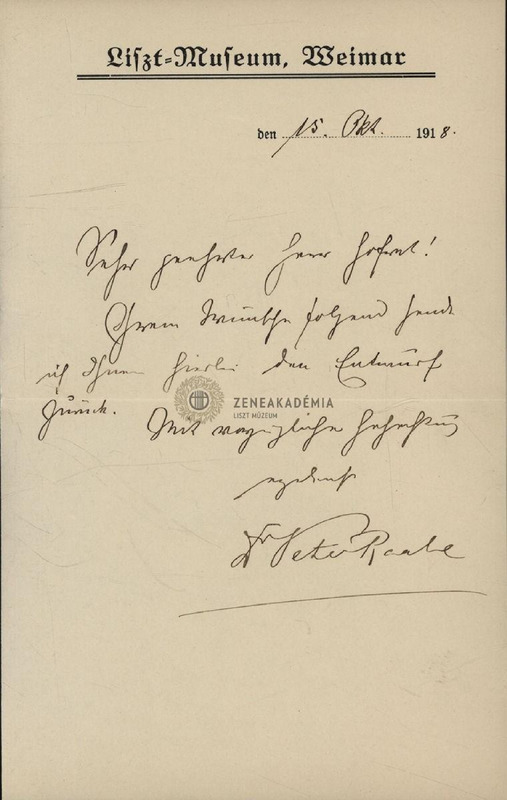 Liszt-Museum, Weimar
den 15. Okt. 1918.
Sehr geehrter Herr Hofrat!
Ihrem Wunsche folgend sende
ich Ihnen hierbei den Entwurf
zurück. Mit vorzüglicher Hochachtung
ergebenst
Dr Peter Raabe
ZENEAKADÉMIA
LISZT MÚZEUM